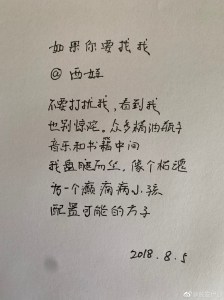 如果你要找我
@西娃
不要打扰我，看到我
也别惊诧。众多精油瓶子
音乐和书籍中间
我盘腿而坐，像个松鼠
为一个癫痫病小孩
配置可能的方子
2018.8.5